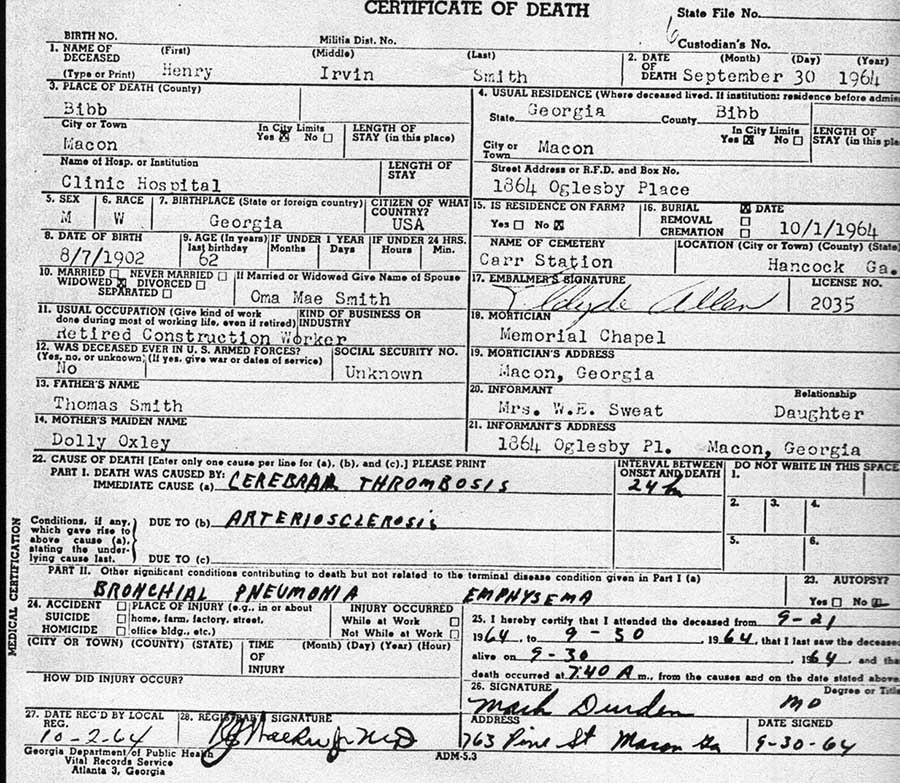 CERTIFICATE OF DEATH
State File No.
BIRTH NO. Militia Dist. No. Custodian's No.
1. NAME OF DECEASED (First) (Middle) (Last) 2. DATE OF DEATH (Month) (Day) (Year)
(Type or Print) Henry Irvin Smith September 30 1964
3. PLACE OF DEATH (County)
Bibb
City or Town In City Limits LENGTH OF
Macon Yes X No STAY (in this place)
Name of Hosp. or Institution LENGTH OF STAY
Clinic Hospital
4. USUAL RESIDENCE (Where deceased lived. If institution: residence before admis
State Georgia County Bibb
City or Town Macon In City Limits Yes X No LENGTH OF STAY (in this pla
Street Address or R.F.D. and Box No.
1864 Oglesby Place
5. SEX 6. RACE 7. BIRTHPLACE (State or foreign country) CITIZEN OF WHAT COUNTRY?
M W Georgia USA
8. DATE OF BIRTH 9. AGE (In years) last birthday IF UNDER 1 YEAR Months Days IF UNDER 24 HRS. Hours Min.
8/7/1902 62
10. MARRIED NEVER MARRIED If Married or Widowed Give Name of Spouse
WIDOWED X DIVORCED
SEPARATED Oma Mae Smith
11. USUAL OCCUPATION (Give kind of work done during most of working life, even if retired) KIND OF BUSINESS OR INDUSTRY
Retired Construction Worker
12. WAS DECEASED EVER IN U. S. ARMED FORCES? SOCIAL SECURITY NO.
(Yes, no, or unknown) (If yes, give war or dates of service)
No Unknown
13. FATHER'S NAME
Thomas Smith
14. MOTHER'S MAIDEN NAME
Dolly Oxley
15. IS RESIDENCE ON FARM? 16. BURIAL X DATE
Yes No X REMOVAL
CREMATION 10/1/1964
NAME OF CEMETERY LOCATION (City or Town) (County) (State)
Carr Station Hancock Ga.
17. EMBALMER'S SIGNATURE LICENSE NO.
Clyde Allen 2035
18. MORTICIAN
Memorial Chapel
19. MORTICIAN'S ADDRESS
Macon, Georgia
20. INFORMANT Relationship
Mrs. W.E. Sweat Daughter
21. INFORMANT'S ADDRESS
1864 Oglesby Pl. Macon, Georgia
22. CAUSE OF DEATH [Enter only one cause per line for (a), (b), and (c).] PLEASE PRINT INTERVAL BETWEEN ONSET AND DEATH DO NOT WRITE IN THIS SPACE
PART I. DEATH WAS CAUSED BY:
IMMEDIATE CAUSE (a) CEREBRAL THROMBOSIS 24 h 1.
2. 3. 4.
Conditions, if any, which gave rise to above cause (a), stating the underlying cause last.
DUE TO (b) ARTERIOSCLEROSIS
5. 6.
DUE TO (c)
PART II. Other significant conditions contributing to death but not related to the terminal disease condition given in Part I (a) 23. AUTOPSY?
BRONCHIAL PNEUMONIA EMPHYSEMA Yes No X
MEDICAL CERTIFICATION
24. ACCIDENT PLACE OF INJURY (e.g., in or about home, farm, factory, street, office bldg., etc.) INJURY OCCURRED
SUICIDE While at Work
HOMICIDE Not While at Work
(CITY OR TOWN) (COUNTY) (STATE) TIME OF INJURY (Month) (Day) (Year) (Hour)
HOW DID INJURY OCCUR?
25. I hereby certify that I attended the deceased from 9-21
1964, to 9-30, 1964, that I last saw the deceased
alive on 9-30, 1964, and tha
death occurred at 7:40 A m., from the causes and on the date stated above
26. SIGNATURE Degree or Title
Mark Durden MD
27. DATE REC'D BY LOCAL REG. 28. REGISTRAR'S SIGNATURE ADDRESS DATE SIGNED
10-2-64 763 Pine St Macon Ga 9-30-64
Georgia Department of Public Health
Vital Records Service
Atlanta 3, Georgia
ADM-5.3